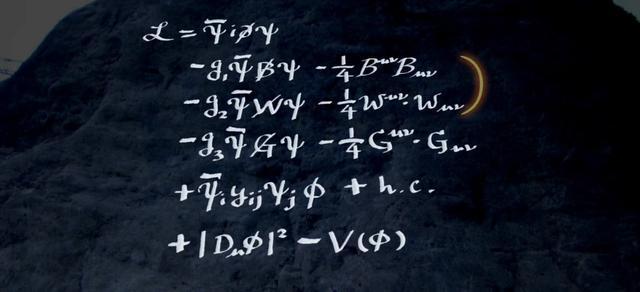 ℒ = ψ̄i∂̸ψ
-g₁ψ̄B̸ψ -¼B^{μν}B_{μν}
-g₂ψ̄W̸ψ -¼W^{μν}·W_{μν}
-g₃ψ̄G̸ψ -¼G^{μν}·G_{μν}
+ψ̄ᵢyᵢⱼψⱼϕ + h.c.
+|D_μϕ|² -V(ϕ)